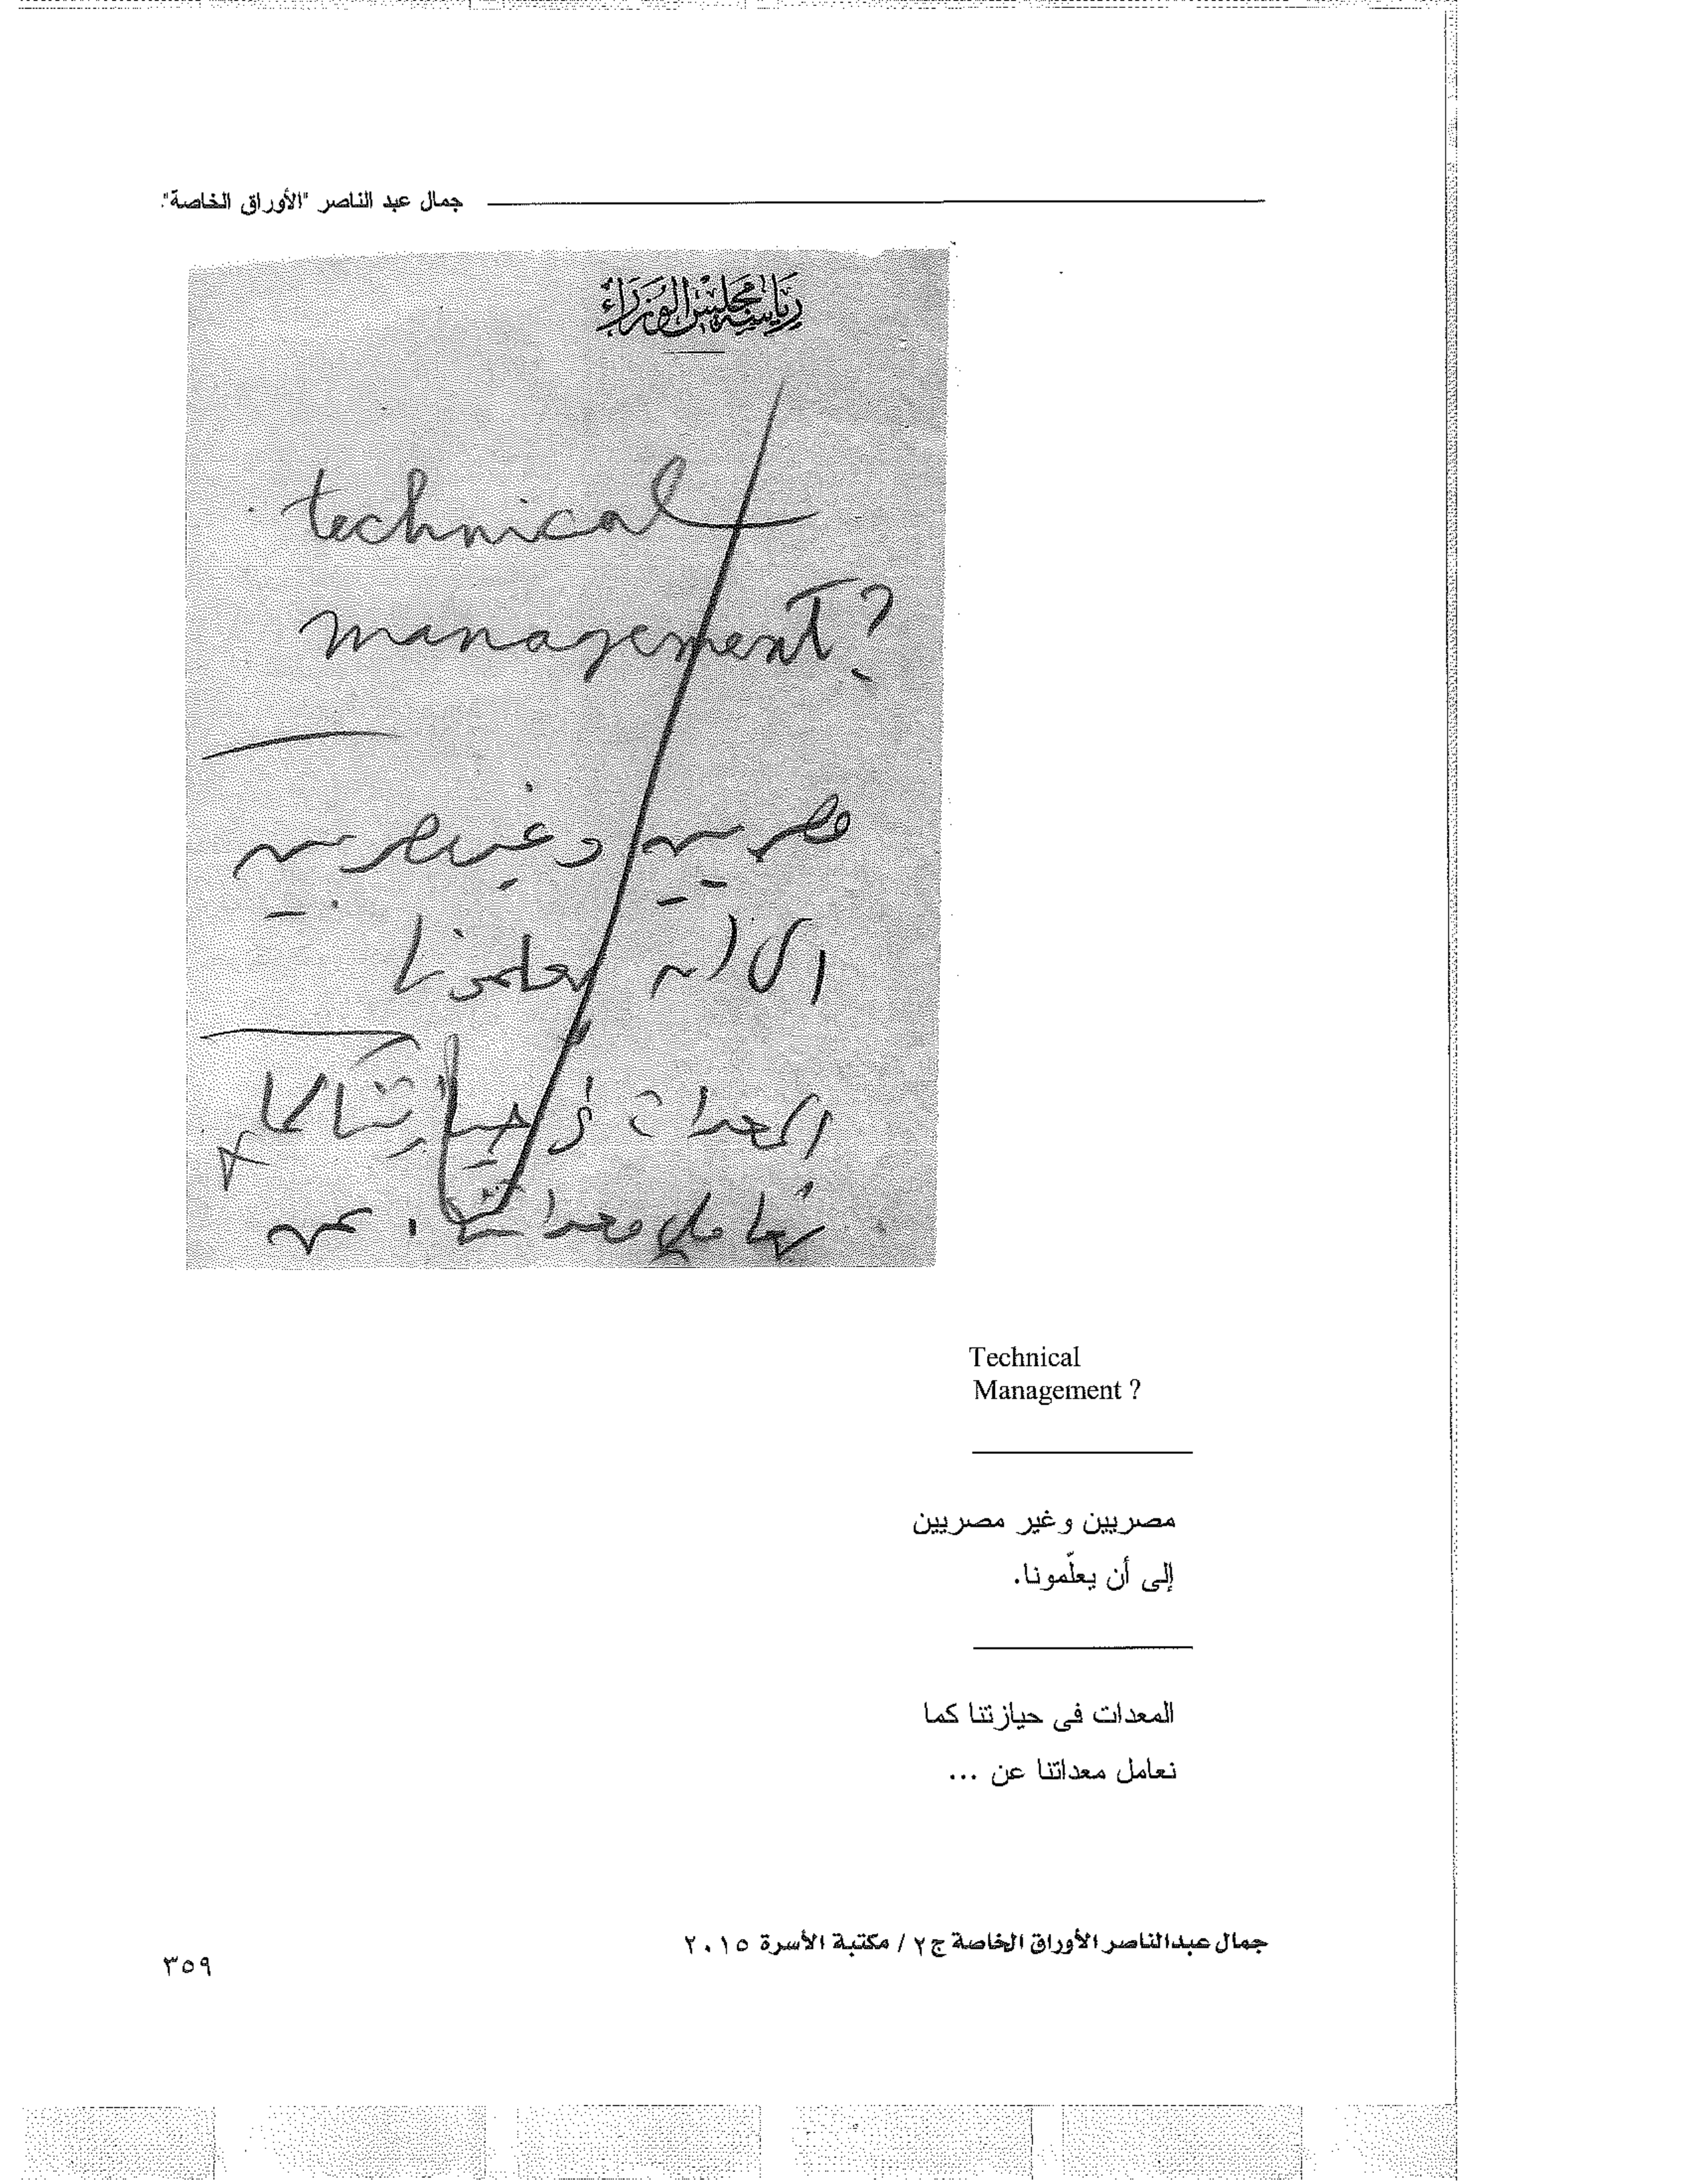 جمال عبد الناصر "الأوراق الخاصة".
رياسة مجلس الوزراء
technical
management?
مصريين وغير مصريين
الى ان يعلمونا
المعدات فى حيازتنا كما
نعامل معداتنا . عن
Technical
Management ?
مصريين وغير مصريين
إلى أن يعلّمونا.
المعدات فى حيازتنا كما
نعامل معداتنا عن ...
جمال عبدالناصر الأوراق الخاصة ج٢ / مكتبة الأسرة ٢٠١٥
٣٥٩